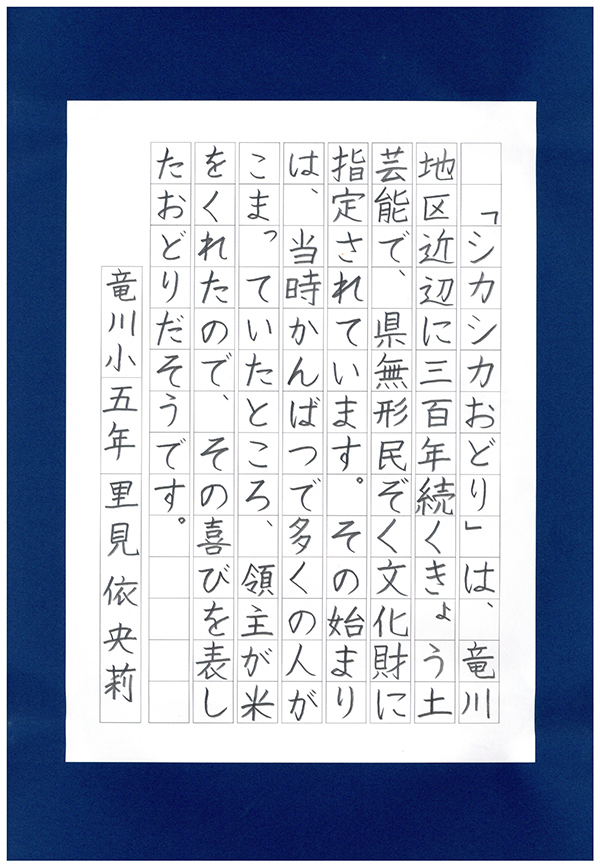 「シカシカおどり」は、竜川
地区近辺に三百年続くきょう土
芸能で、県無形民ぞく文化財に
指定されています。その始まり
は、当時かんばつで多くの人が
こまっていたところ、領主が米
をくれたので、その喜びを表し
たおどりだそうです。
竜川小五年 里見依央莉